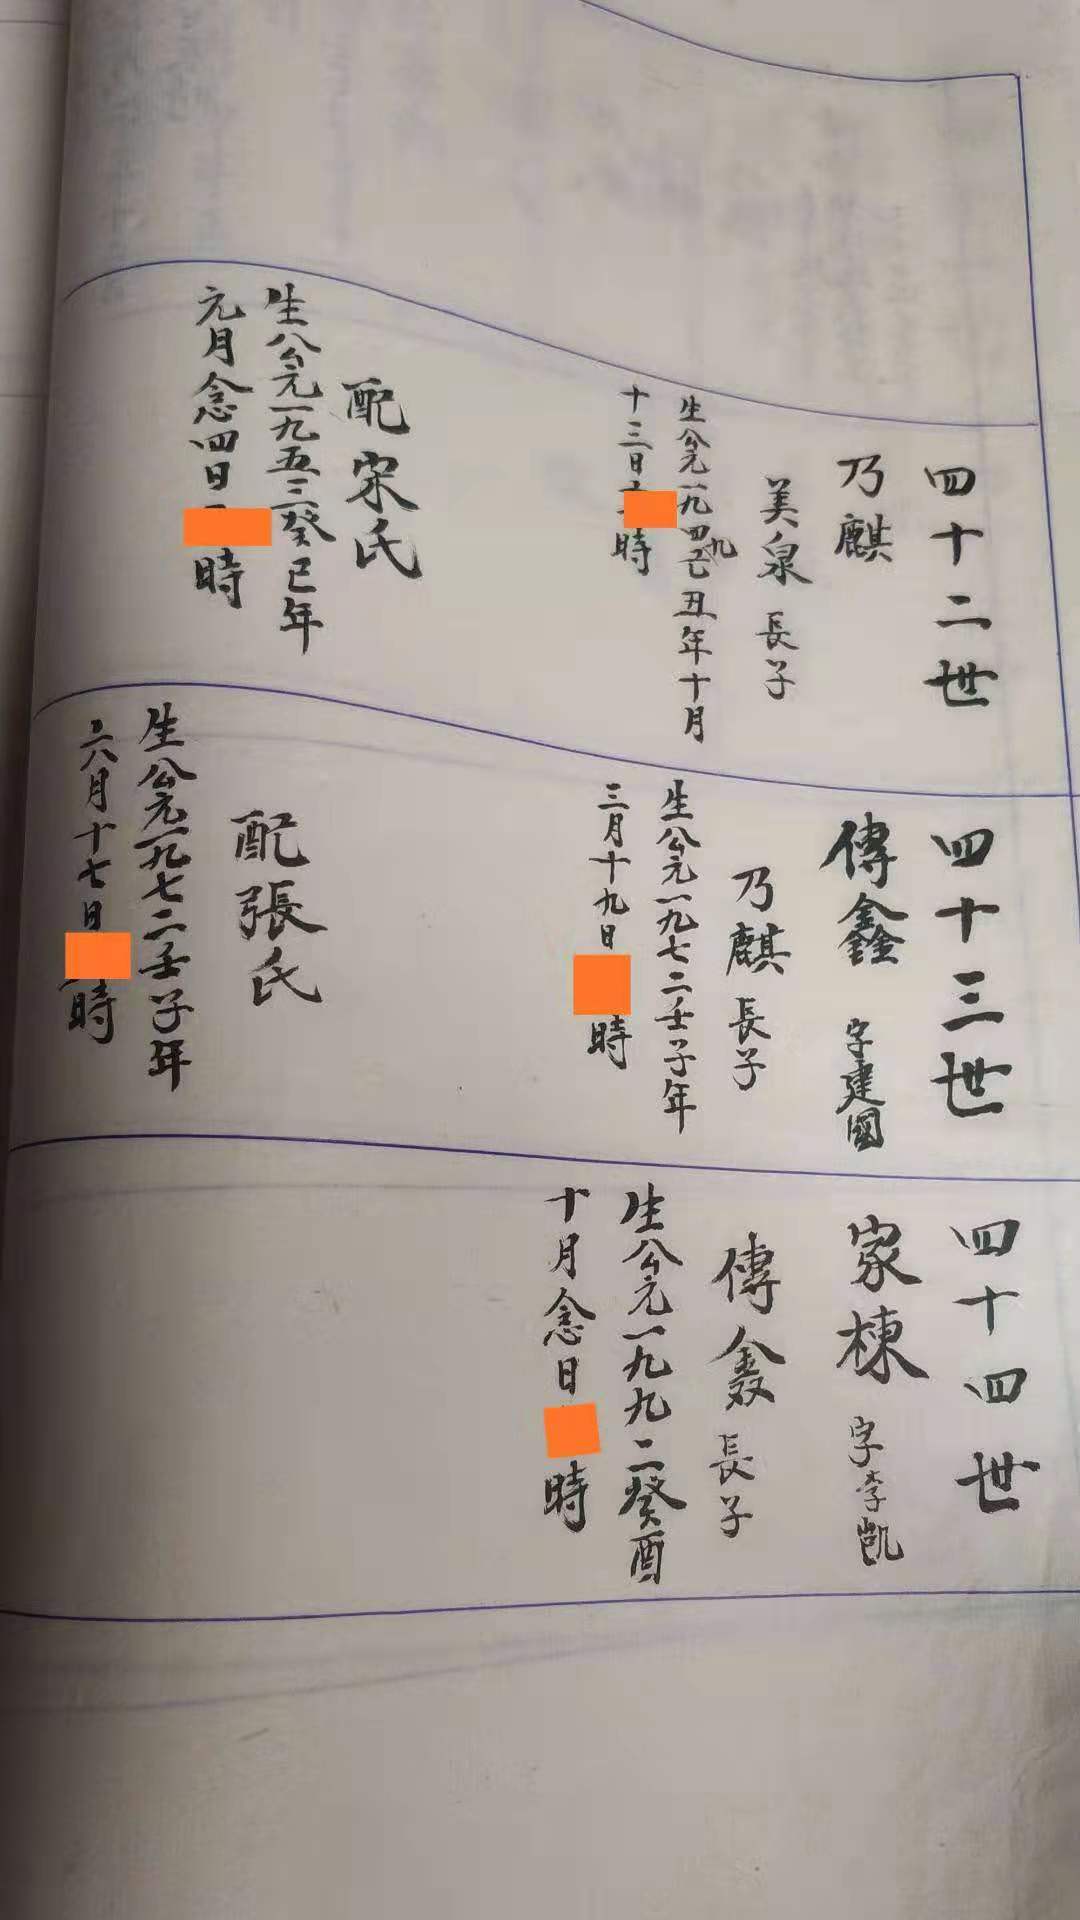 四十二世
乃麒
美泉 長子
生公元一九四九己丑年十月
十三日
時
配宋氏
生公元一九五三癸巳年
元月念四日
時
四十三世
傳鑫 字建國
乃麒 長子
生公元一九七二壬子年
三月十九日
時
配張氏
生公元一九七二壬子年
六月十七日
時
四十四世
家棟 字李凱
傳鑫 長子
生公元一九九二癸酉
十月念日
時